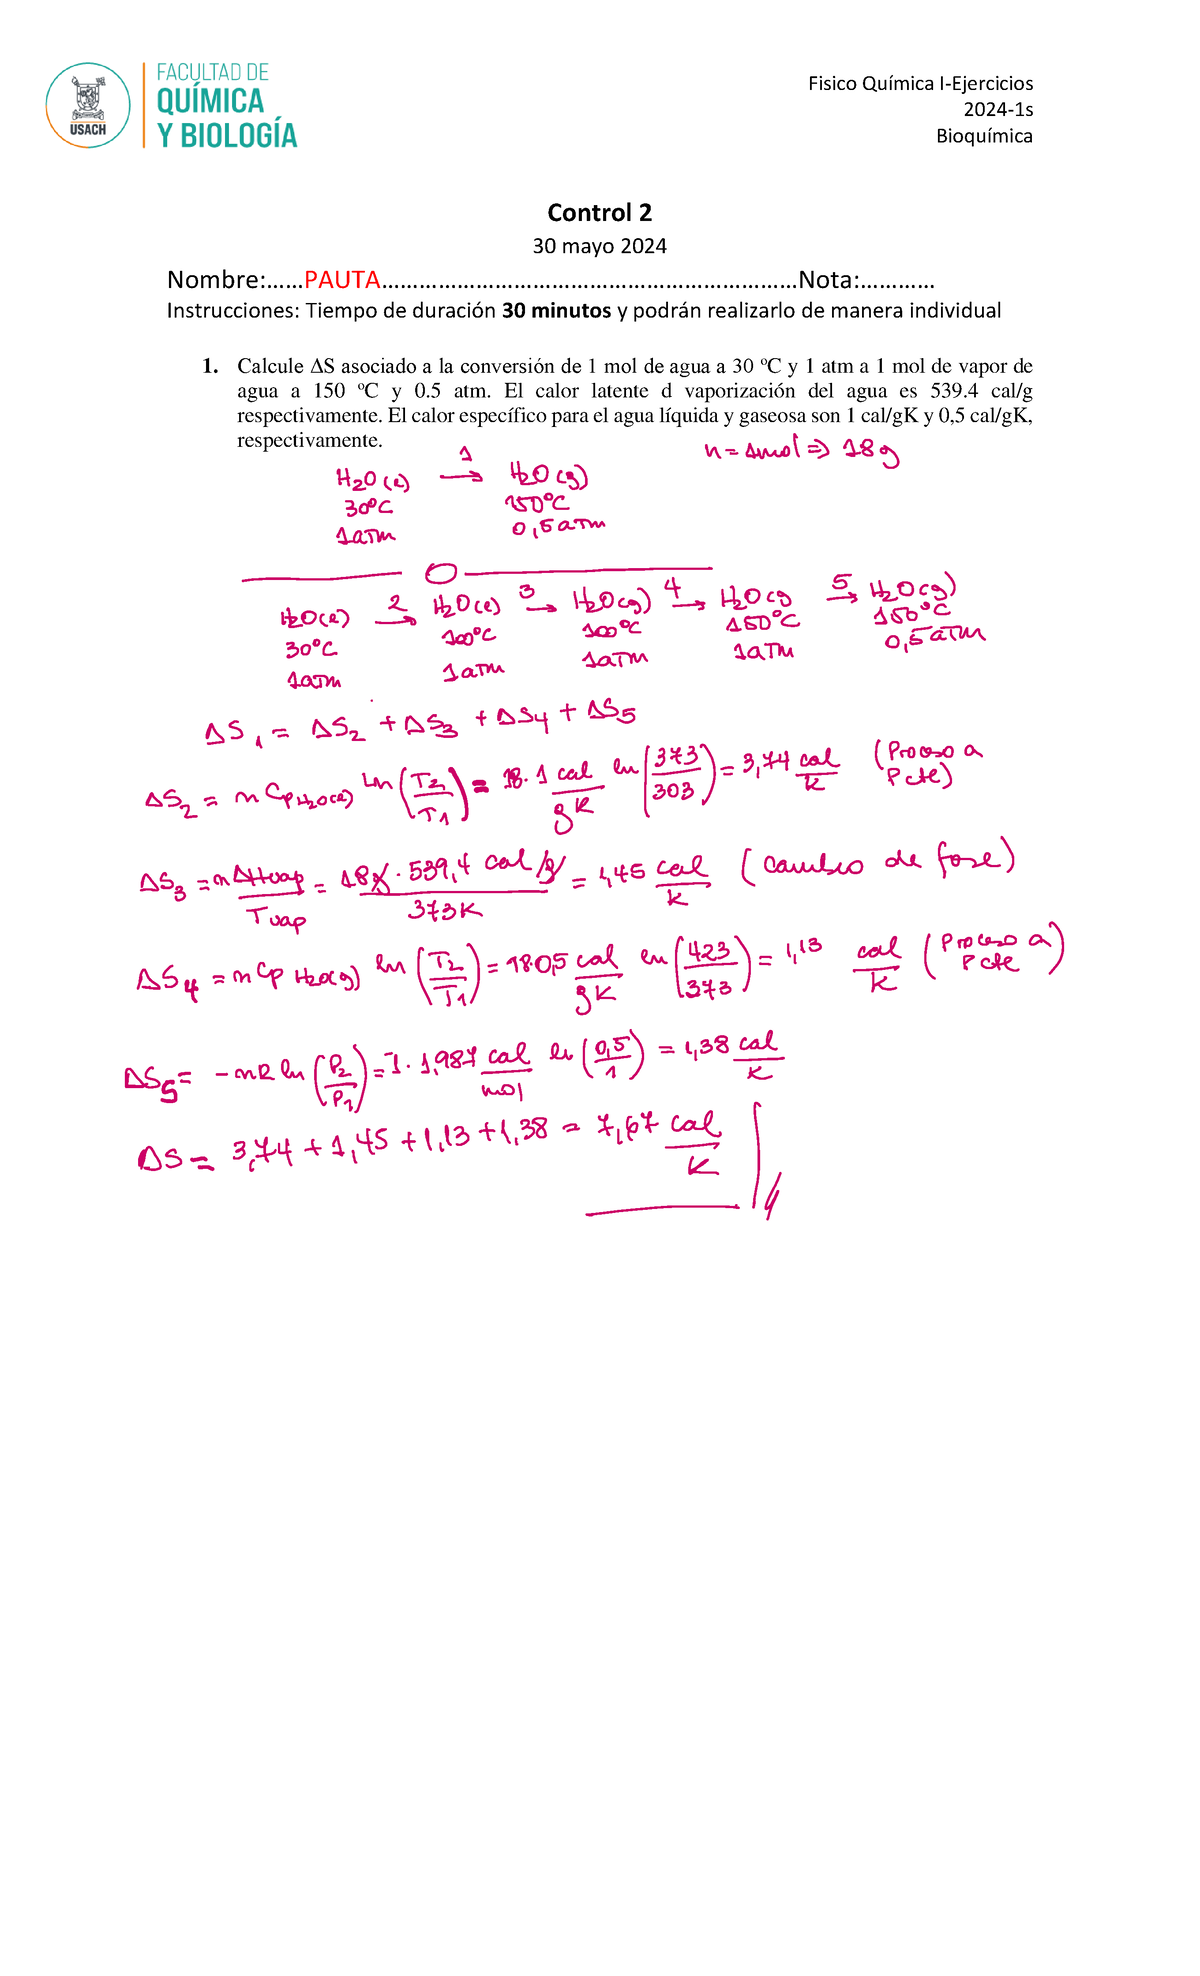 FACULTAD DE
QUÍMICA
Y BIOLOGÍA
USACH
Fisico Química I-Ejercicios
2024-1s
Bioquímica
Control 2
30 mayo 2024
Nombre:……PAUTA…………………………………………………………Nota:…………
Instrucciones: Tiempo de duración 30 minutos y podrán realizarlo de manera individual
1. Calcule ΔS asociado a la conversión de 1 mol de agua a 30 ºC y 1 atm a 1 mol de vapor de
agua a 150 ºC y 0.5 atm. El calor latente d vaporización del agua es 539.4 cal/g
respectivamente. El calor específico para el agua líquida y gaseosa son 1 cal/gK y 0,5 cal/gK,
respectivamente.
n = 1mol => 18 g
H2O(l) 1→ H2O(g)
30°C 150°C
1atm 0,5atm
H2O(l) 2→ H2O(l) 3→ H2O(g) 4→ H2O(g 5→ H2O(g)
30°C 100°C 100°C 150°C 150°C
1atm 1atm 1atm 1atm 0,5atm
ΔS1 = ΔS2 + ΔS3 + ΔS4 + ΔS5
ΔS2 = m CpH2O(l) ln (T2/T1) = 18 · 1 cal/gK ln (373/303) = 3,74 cal/K (Proceso a Pcte)
ΔS3 = m ΔHvap/Tvap = 18g · 539,4 cal/g / 373K = 1,45 cal/K (cambio de fase)
ΔS4 = m Cp H2O(g) ln (T2/T1) = 18·0,5 cal/gK ln (423/373) = 1,13 cal/K (Proceso a Pcte)
ΔS5 = -nR ln (P2/P1) = -1 · 1,987 cal/mol ln (0,5/1) = 1,38 cal/K
ΔS = 3,74 + 1,45 + 1,13 + 1,38 = 7,67 cal/K